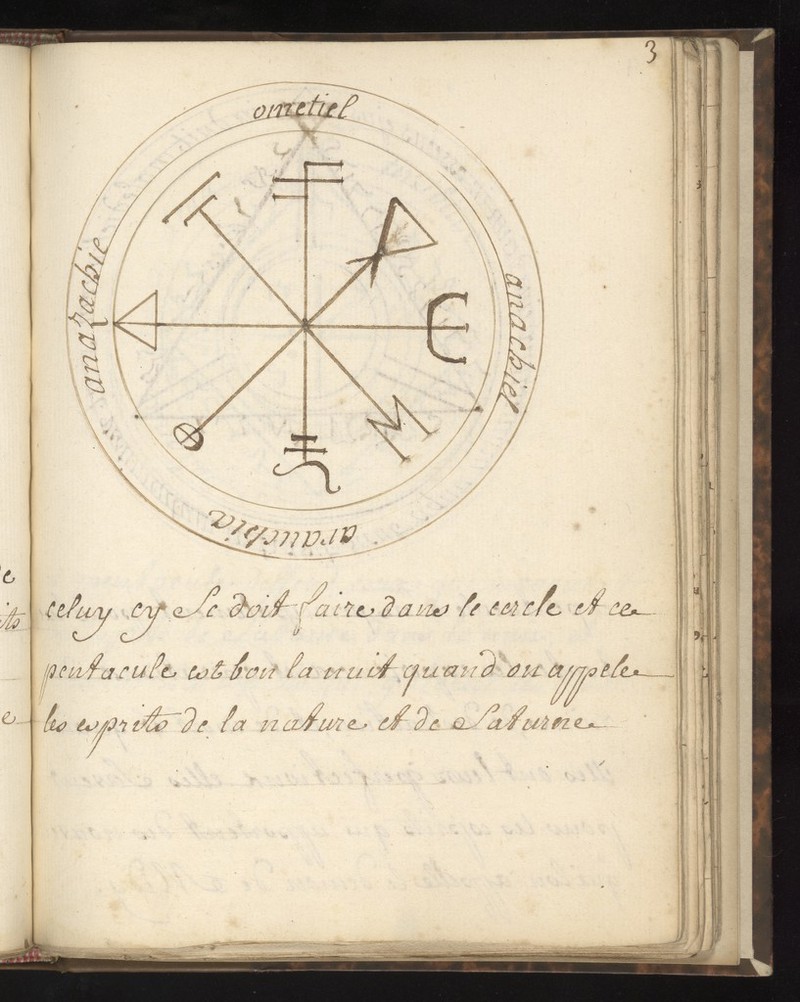 3
ometiel
anachiel
arauchia
anazachie
celuy cy Se doit faire dans le cercle et ce
pentacule est bon la nuit quand on appele
les esprits de la nature et de Saturne